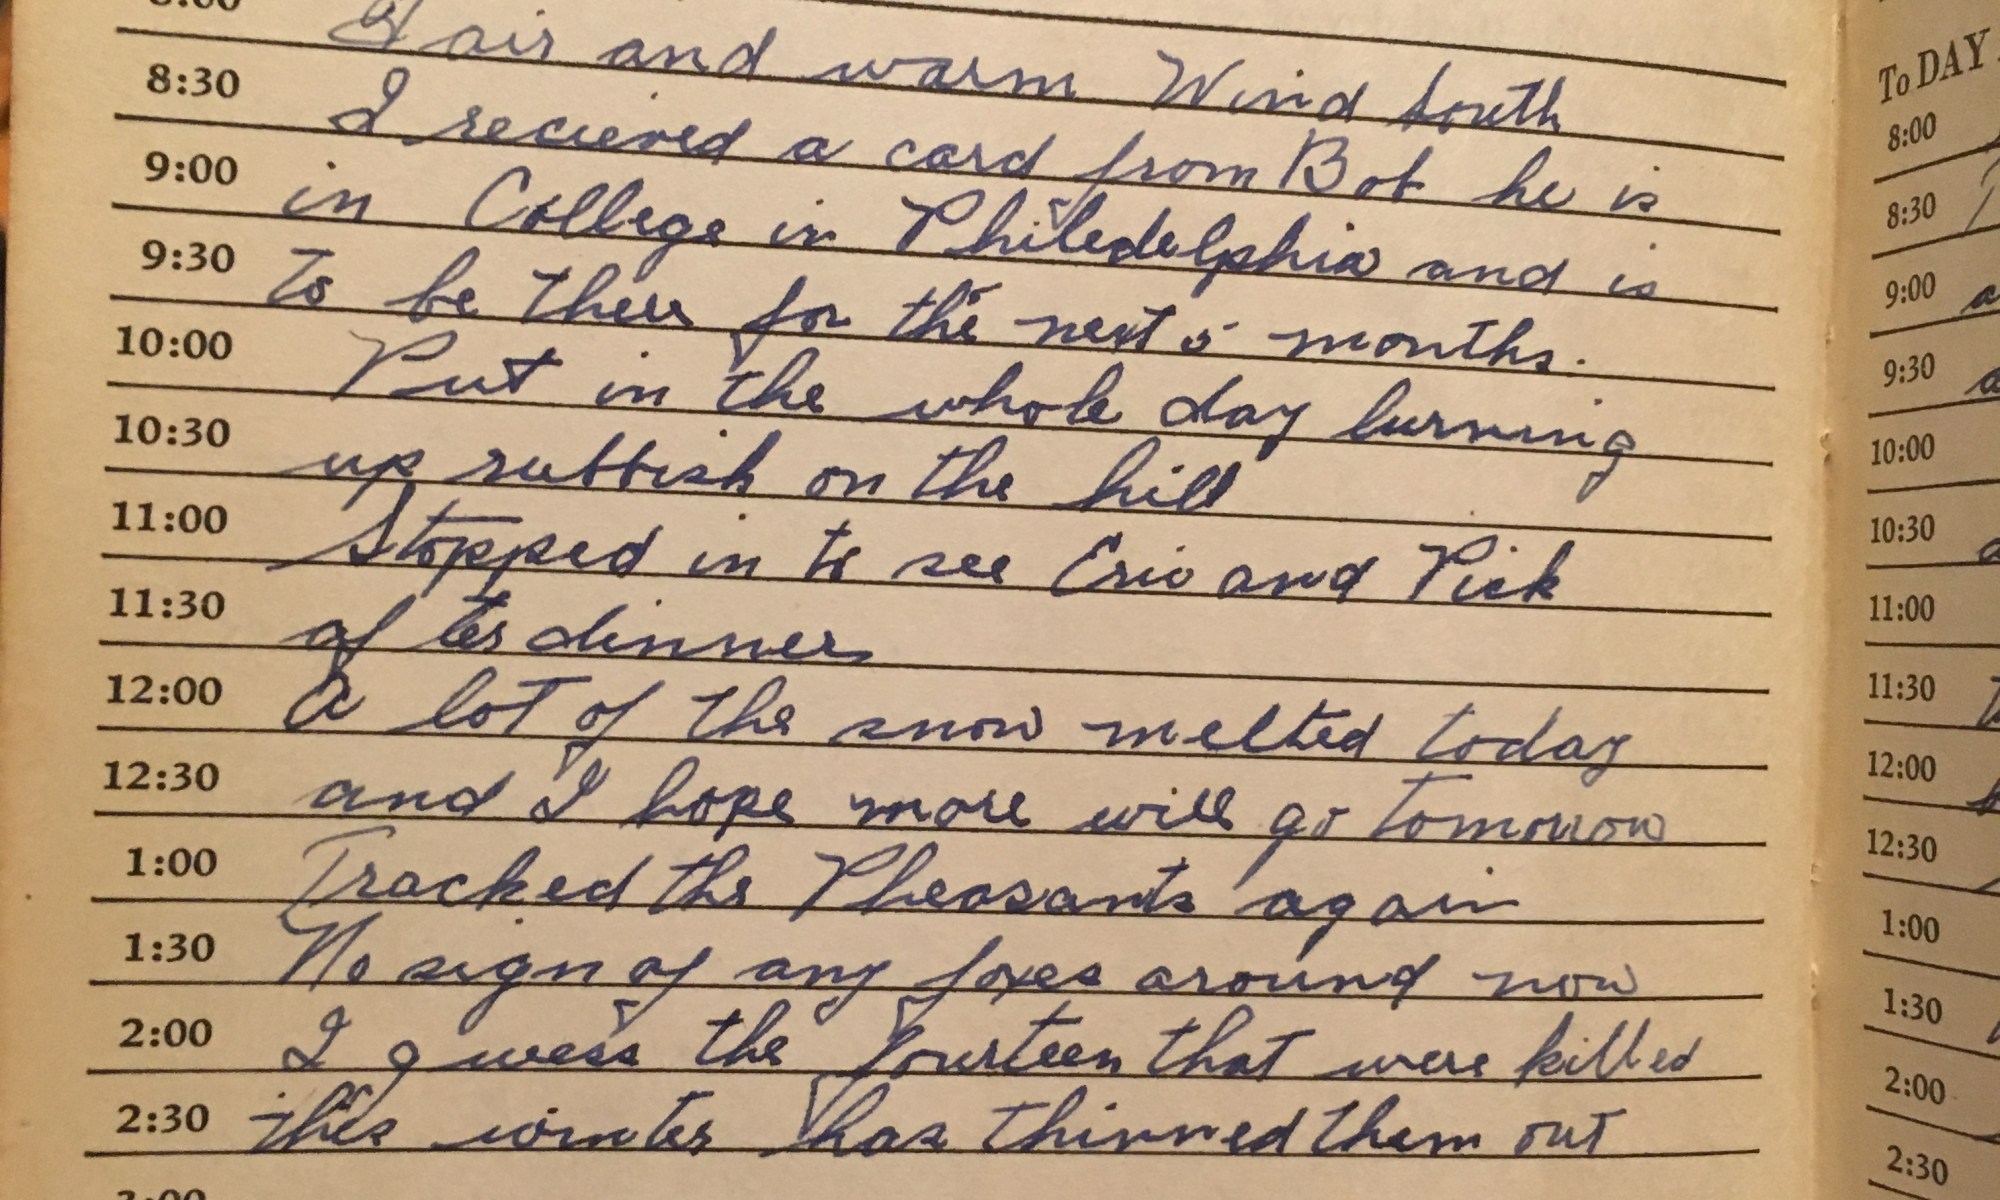 8:00 Fair and warm Wind South
8:30 I recieved a card from Bob he is
9:00 in College in Philedelphia and is
9:30 to be there for the next 5 months.
10:00 Put in the whole day burning
10:30 up rubbish on the hill
11:00 Stopped in to see Eric and Pick
11:30 after dinner
12:00 A lot of the snow melted today
12:30 and I hope more will go tomorrow
1:00 Tracked the Pheasants again
1:30 No sign of any foxes around now
2:00 I guess the fourteen that were killed
2:30 this winter has thinned them out
3:00
To DAY
8:00
8:30
9:00
9:30
10:00
10:30
11:00
11:30
12:00
12:30
1:00
1:30
2:00
2:30